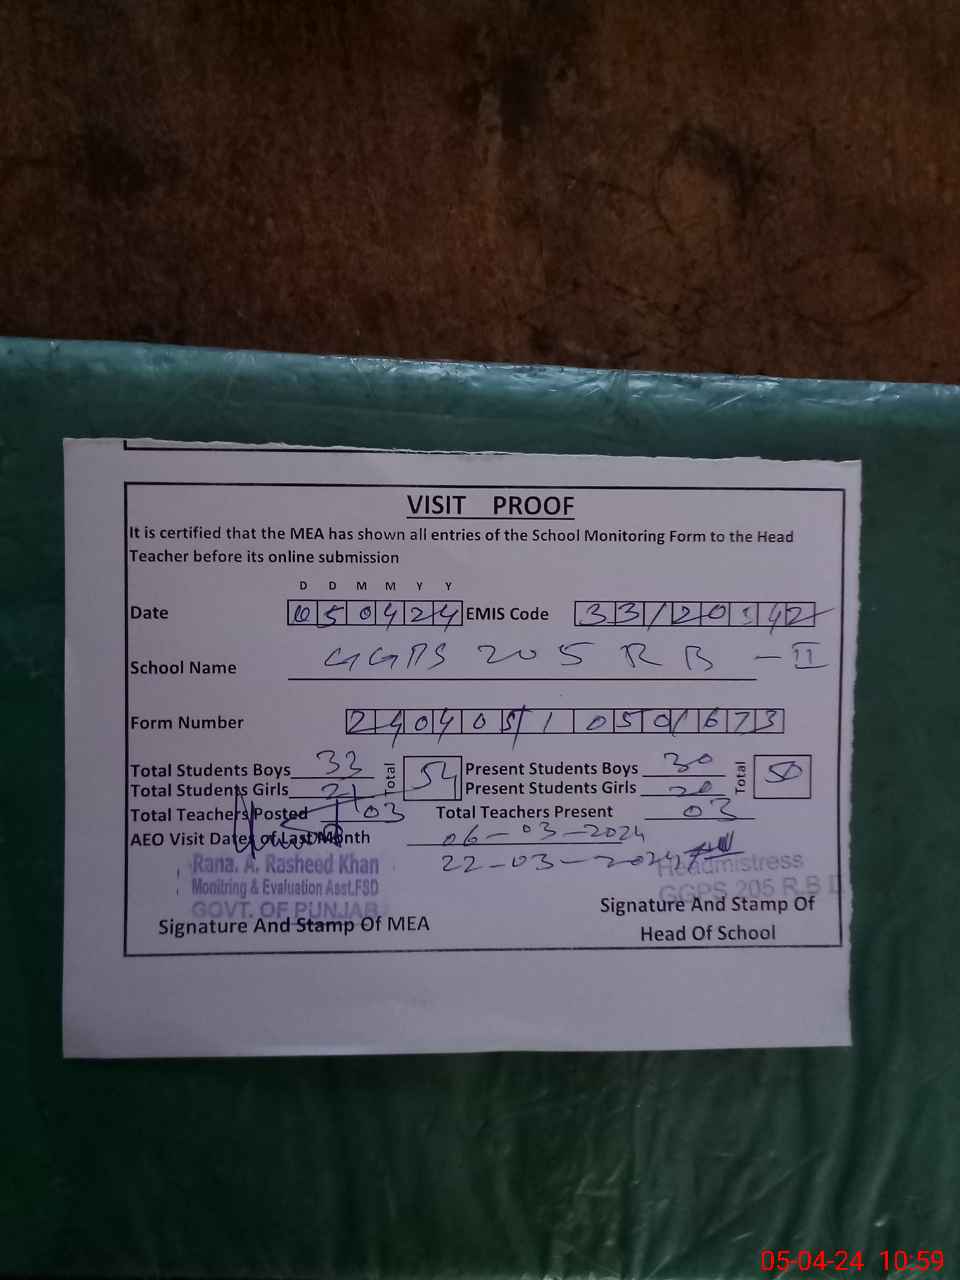 VISIT PROOF
It is certified that the MEA has shown all entries of the School Monitoring Form to the Head
Teacher before its online submission
D D M M Y Y
Date 050424 EMIS Code 33120342
School Name GGPS 205 R B - II
Form Number
Total Students Boys 33 Total 54 Present Students Boys 30 Total 50
Total Students Girls 21 Present Students Girls 20
Total Teachers Posted 03 Total Teachers Present 03
AEO Visit Date of Last Month 06-03-2024
22-03-2024
Rana. A. Rasheed Khan Headmistress
Monitring & Evaluation Asst.FSD GGPS 205 R.B II
GOVT. OF PUNJAB
Signature And Stamp Of MEA Signature And Stamp Of
Head Of School
05-04-24 10:59